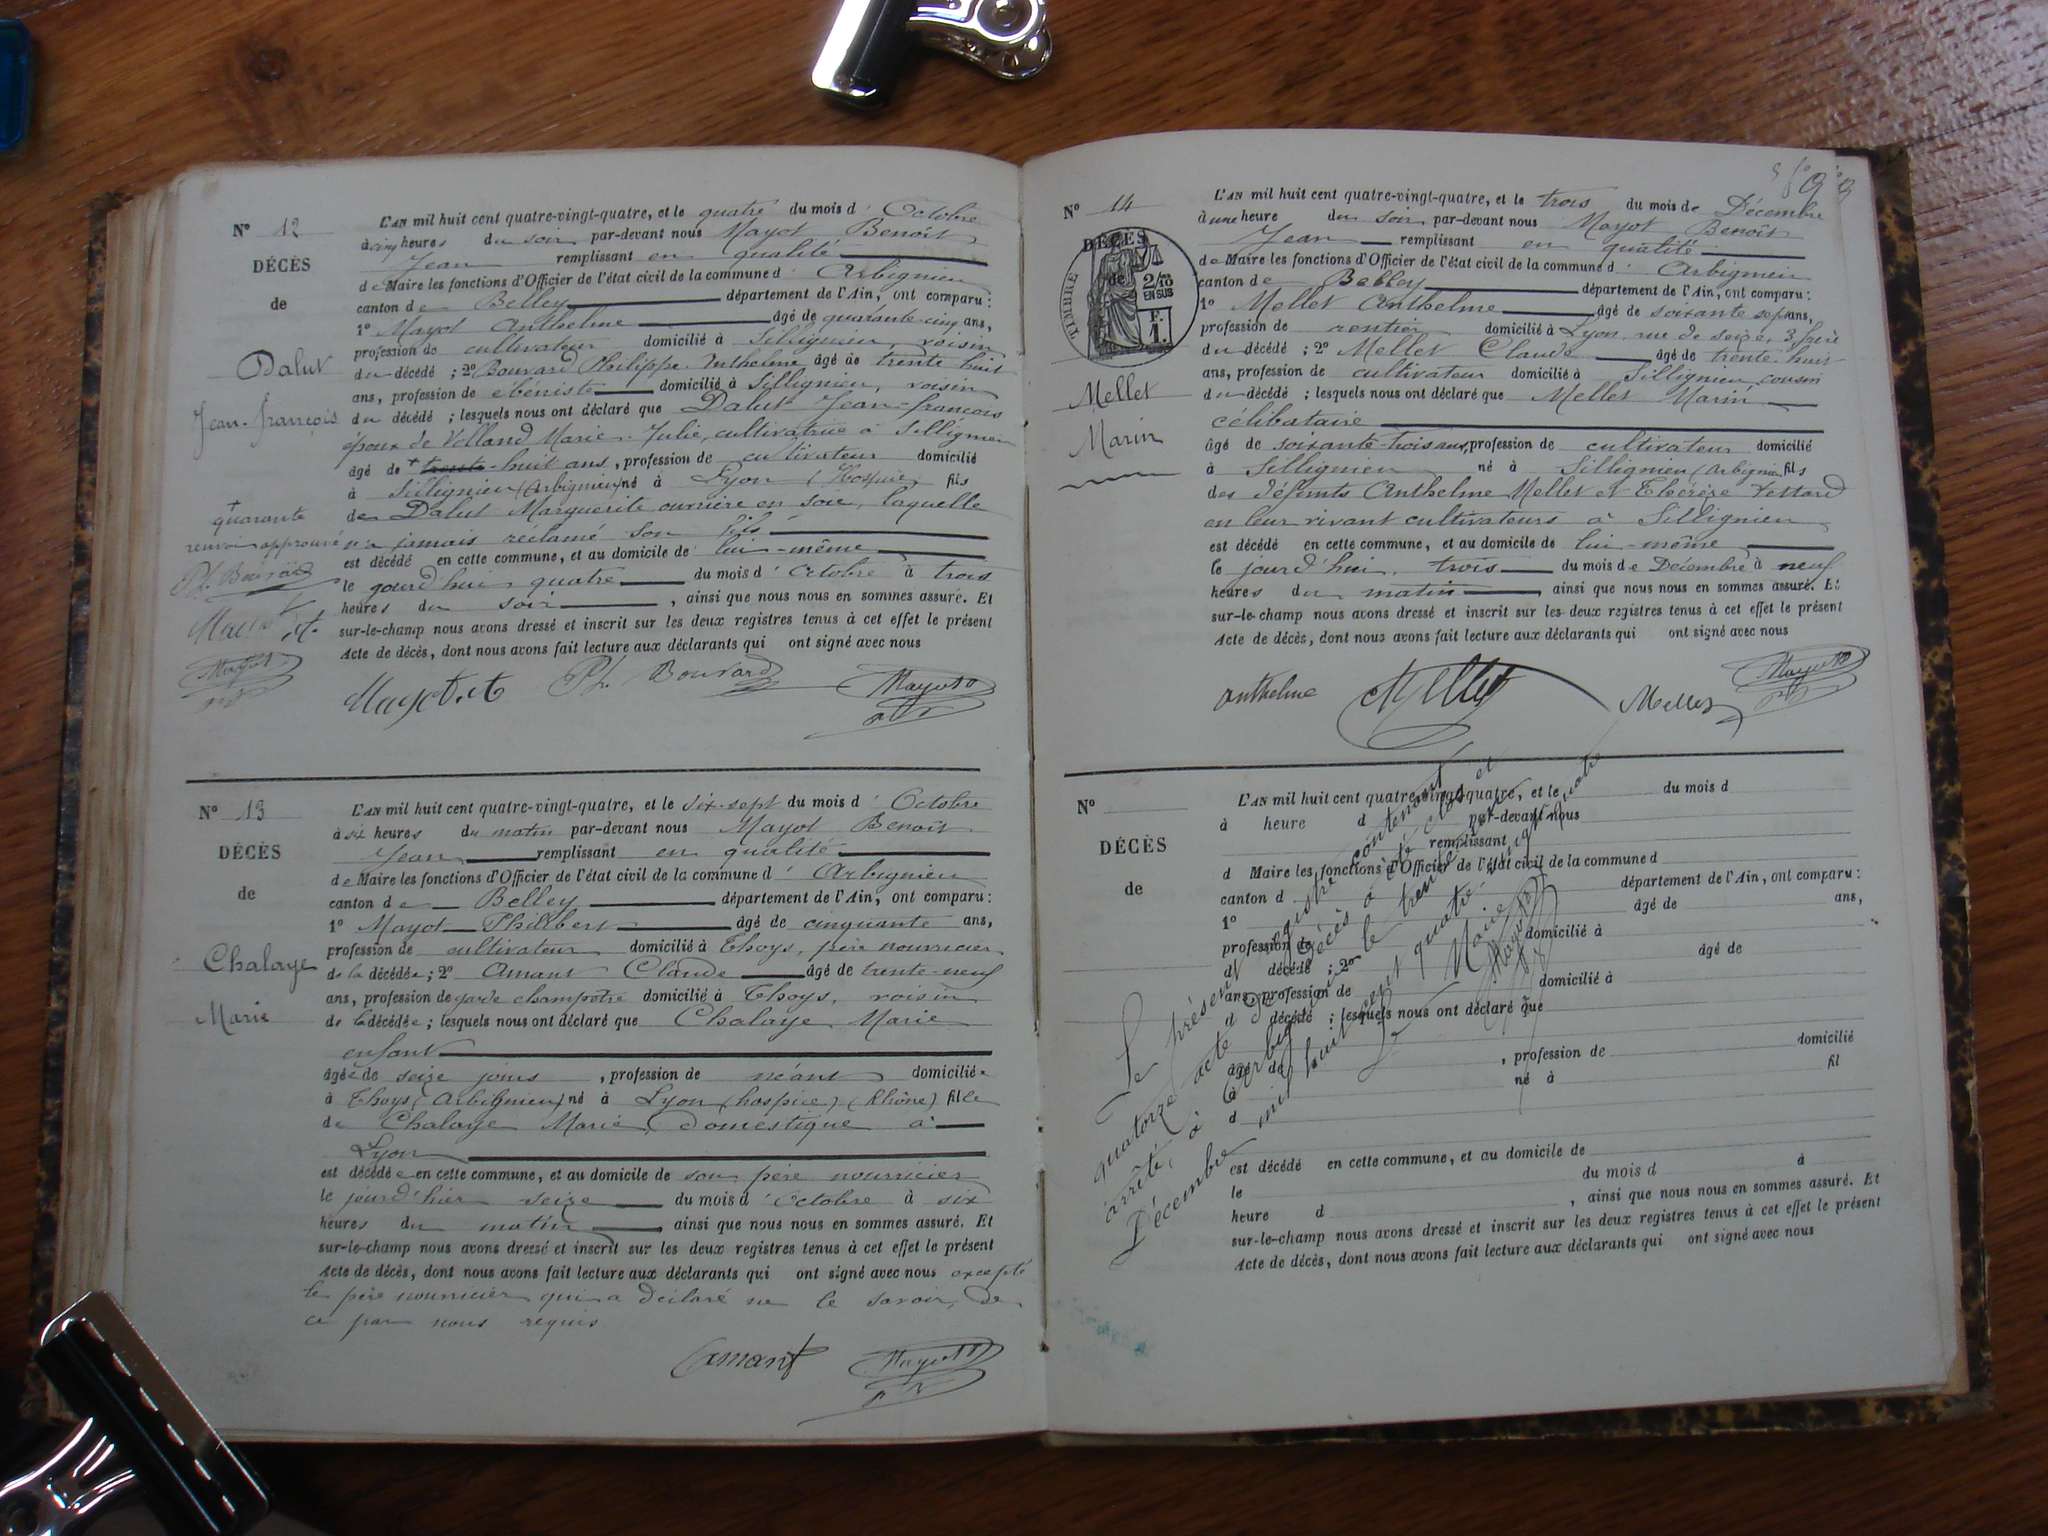 N° 12
DÉCÈS
de
Dalut
Jean-françois
+
quarante
renvoi approuvé
Ph. Bouvard
Mayot
L'AN mil huit cent quatre-vingt-quatre, et le quatre du mois d'Octobre
à cinq heures du soir par-devant nous Mayot Benoît
Jean remplissant en qualité
de Maire les fonctions d'Officier de l'état civil de la commune d'Arbignieu
canton de Belley département de l'Ain, ont comparu:
1° Mayot Anthelme âgé de quarante-cinq ans,
profession de cultivateur domicilié à Sillignieu, voisin
du décédé; 2° Bouvard Philippe Anthelme âgé de trente huit
ans, profession de ébéniste domicilié à Sillignieu, voisin
du décédé; lesquels nous ont déclaré que Dalut Jean-francois
époux de Velland Marie-Julie, cultivatrice à Sillignieu
âgé de + trente-huit ans, profession de cultivateur domicilié
à Sillignieu (Arbignieu) né à Lyon (Hospice) fils
de Dalut Marguerite ouvrière en soie, laquelle
n'a jamais réclamé son fils
est décédé en cette commune, et au domicile de lui-même
le jourd'hui quatre du mois d'Octobre à trois
heures du soir, ainsi que nous nous en sommes assuré. Et
sur-le-champ nous avons dressé et inscrit sur les deux registres tenus à cet effet le présent
Acte de décès, dont nous avons fait lecture aux déclarants qui ont signé avec nous
Mayot. A Ph. Bouvard Mayot
N° 13
DÉCÈS
de
Chalaye
Marie
L'AN mil huit cent quatre-vingt-quatre, et le dix-sept du mois d'Octobre
à six heures du matin par-devant nous Mayot Benoît
Jean remplissant en qualité
de Maire les fonctions d'Officier de l'état civil de la commune d'Arbignieu
canton de Belley département de l'Ain, ont comparu:
1° Mayot Philibert âgé de cinquante ans,
profession de cultivateur domicilié à Thoys, père nourricier
de la décédée; 2° Amant Claude âgé de trente-neuf
ans, profession de garde champêtre domicilié à Thoys, voisin
de la décédée; lesquels nous ont déclaré que Chalaye Marie
enfant
âgée de seize jours, profession de néant domiciliée
à Thoys (Arbignieu) né à Lyon (hospice) (Rhône) fille
de Chalaye Marie, domestique à
Lyon
est décédée en cette commune, et au domicile de son père nourricier
le jourd'hier seize du mois d'Octobre à six
heures du matin, ainsi que nous nous en sommes assuré. Et
sur-le-champ nous avons dressé et inscrit sur les deux registres tenus à cet effet le présent
Acte de décès, dont nous avons fait lecture aux déclarants qui ont signé avec nous excepté
le père nourricier qui a déclaré ne le savoir, de
ce par nous requis
Amant Mayot
N° 14
DÉCÈS
de
TIMBRE
2/10
EN SUS
F.
1.
Mellet
Marin
L'AN mil huit cent quatre-vingt-quatre, et le trois du mois de Décembre
à une heure du soir par-devant nous Mayot Benoît
Jean remplissant en qualité
de Maire les fonctions d'Officier de l'état civil de la commune d'Arbignieu
canton de Belley département de l'Ain, ont comparu:
1° Mellet Anthelme âgé de soixante sept ans,
profession de rentier domicilié à Lyon, rue de seize, 3, frère
du décédé; 2° Mellet Claude âgé de trente huit
ans, profession de cultivateur domicilié à Sillignieu, cousin
du décédé; lesquels nous ont déclaré que Mellet Marin
célibataire
âgé de soixante-trois ans, profession de cultivateur domicilié
à Sillignieu né à Sillignieu (Arbignieu) fils
des défunts Anthelme Mellet et Thérèse Tettard
en leur vivant cultivateurs à Sillignieu
est décédé en cette commune, et au domicile de lui-même
le jourd'hui trois du mois de Décembre à neuf
heures du matin, ainsi que nous nous en sommes assuré. Et
sur-le-champ nous avons dressé et inscrit sur les deux registres tenus à cet effet le présent
Acte de décès, dont nous avons fait lecture aux déclarants qui ont signé avec nous
Anthelme Mellet Mellet Mayot
N°
DÉCÈS
de
L'AN mil huit cent quatre-vingt-quatre, et le du mois d
à heure d par-devant nous
remplissant
d Maire les fonctions d'Officier de l'état civil de la commune d
canton d département de l'Ain, ont comparu:
1° âgé de ans,
profession de domicilié à
d décédé; 2° âgé de
ans, profession de domicilié à
d décédé; lesquels nous ont déclaré que
âgé de, profession de domicilié
à né à fil
d
est décédé en cette commune, et au domicile de
le du mois d à
heure d, ainsi que nous nous en sommes assuré. Et
sur-le-champ nous avons dressé et inscrit sur les deux registres tenus à cet effet le présent
Acte de décès, dont nous avons fait lecture aux déclarants qui ont signé avec nous
Le présent registre contenant
quatorze acte de décès à été clos et
arrêté, à Arbignieu le trente et un
Décembre mil huit cent quatre-vingt quatre
Le Maire
Mayot